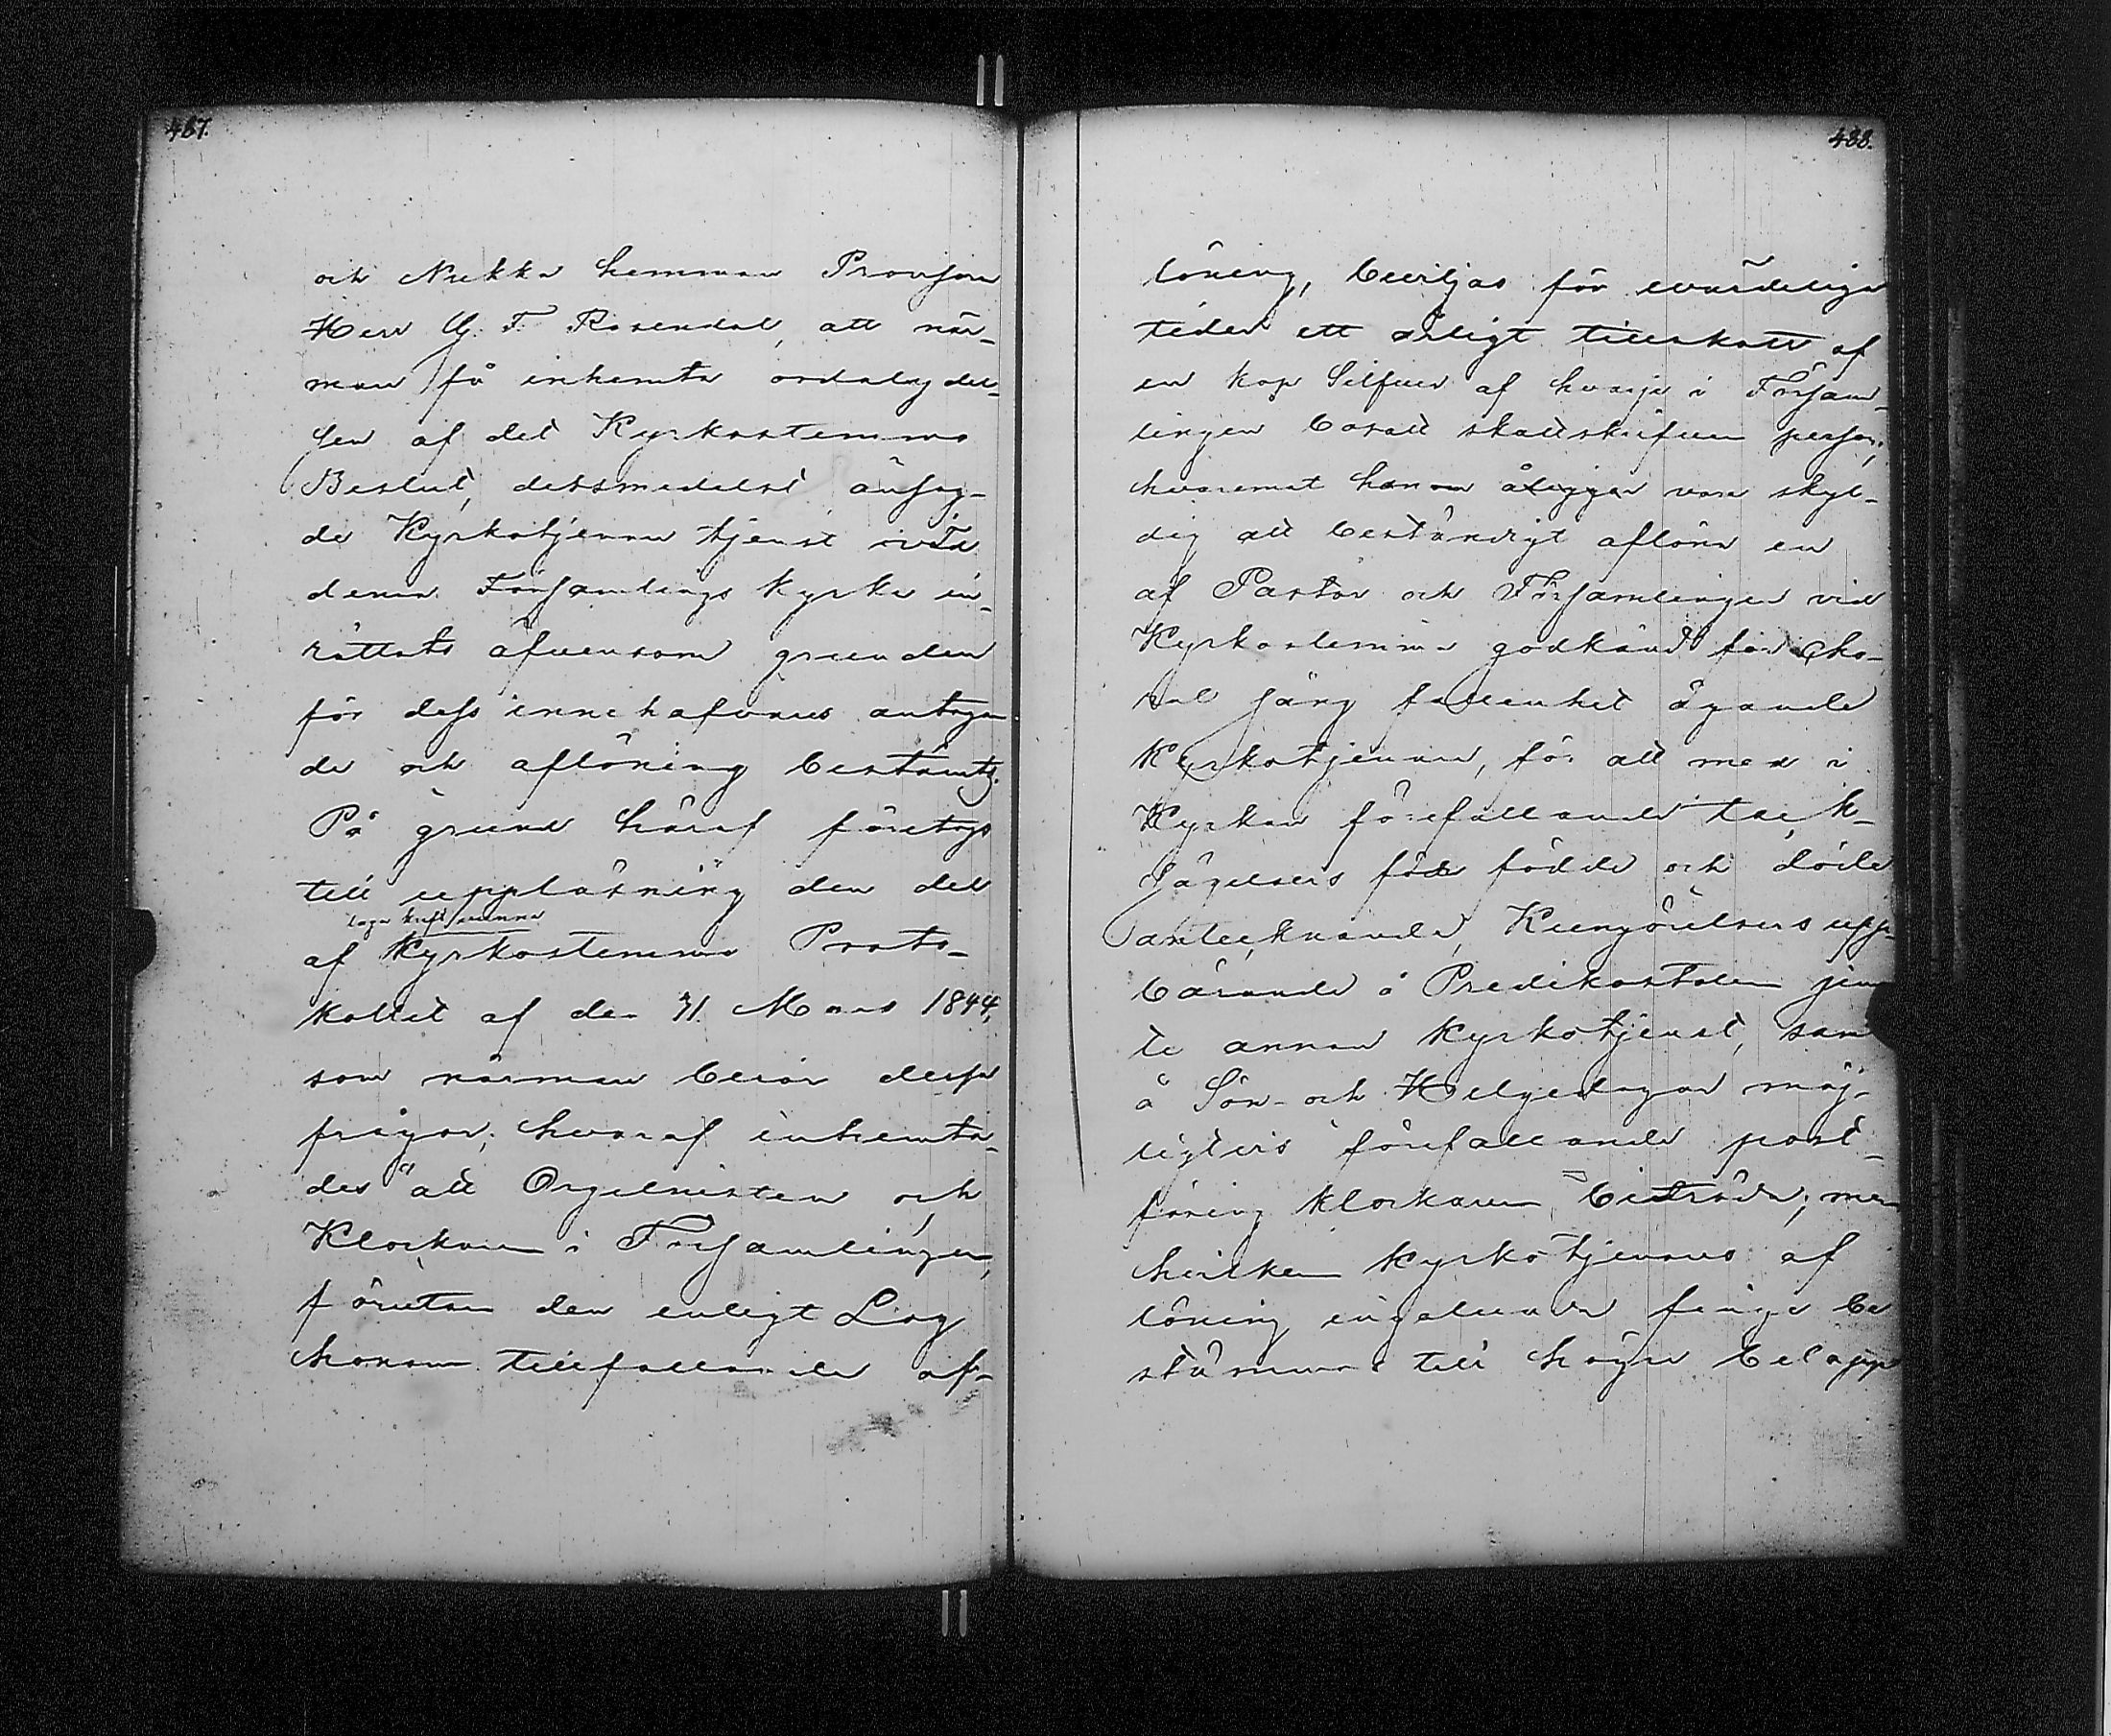 487.
och Nukka hemman Provisorn
Herr G. F. Rosendal, att när-
man få inhemta ordalydel-
sen af det Kyrkostemmo
Beslut, detsmedelst ansag-
de Kyrkotjenare tjenst vid
denna Församlings Kyrka in-
rättats äfvensom grunden
för dess innehafvares antagan
de och aflöning bestämts.
På grund häraf företogs
till uppläsning den del
laga kraft vunna
af Kyrkostemmo Proto-
kollet af den 31. Mars 1844,
som närman berör dessa
frågor; hvaraf inhemta-
des att Orgelnisten och
Klockaren i Församlingen,
förutom den enligt Lag
honom tillfallande af-
488.
löning, beviljas för evärdeliga
tider ett årligt tillskott af
en kop Silfver af hvarje i Försam-
lingen bosatt skattskrifven person;
hvaremot honom åligger vara skyl-
dig att beständigt aflöna en
af Pastor och Församlingen vid
Kyrkostemma godkänd för Cho-
ral sång fallenhet ägande
Kyrkotjenare, för att med i
Kyrkan förefallande tack-
sägelsers födde och döde
antecknande, Kungörelsers upp-
bärande å Predikostolen jem
te annan Kyrkotjenst, samt
å Sön- och Helgedagar möj-
ligtvis förefallande post-
föring Klockaren biträda; men
hvilken Kyrkotjenares af
löning ingalunda finge be
stämmas till högre belopp